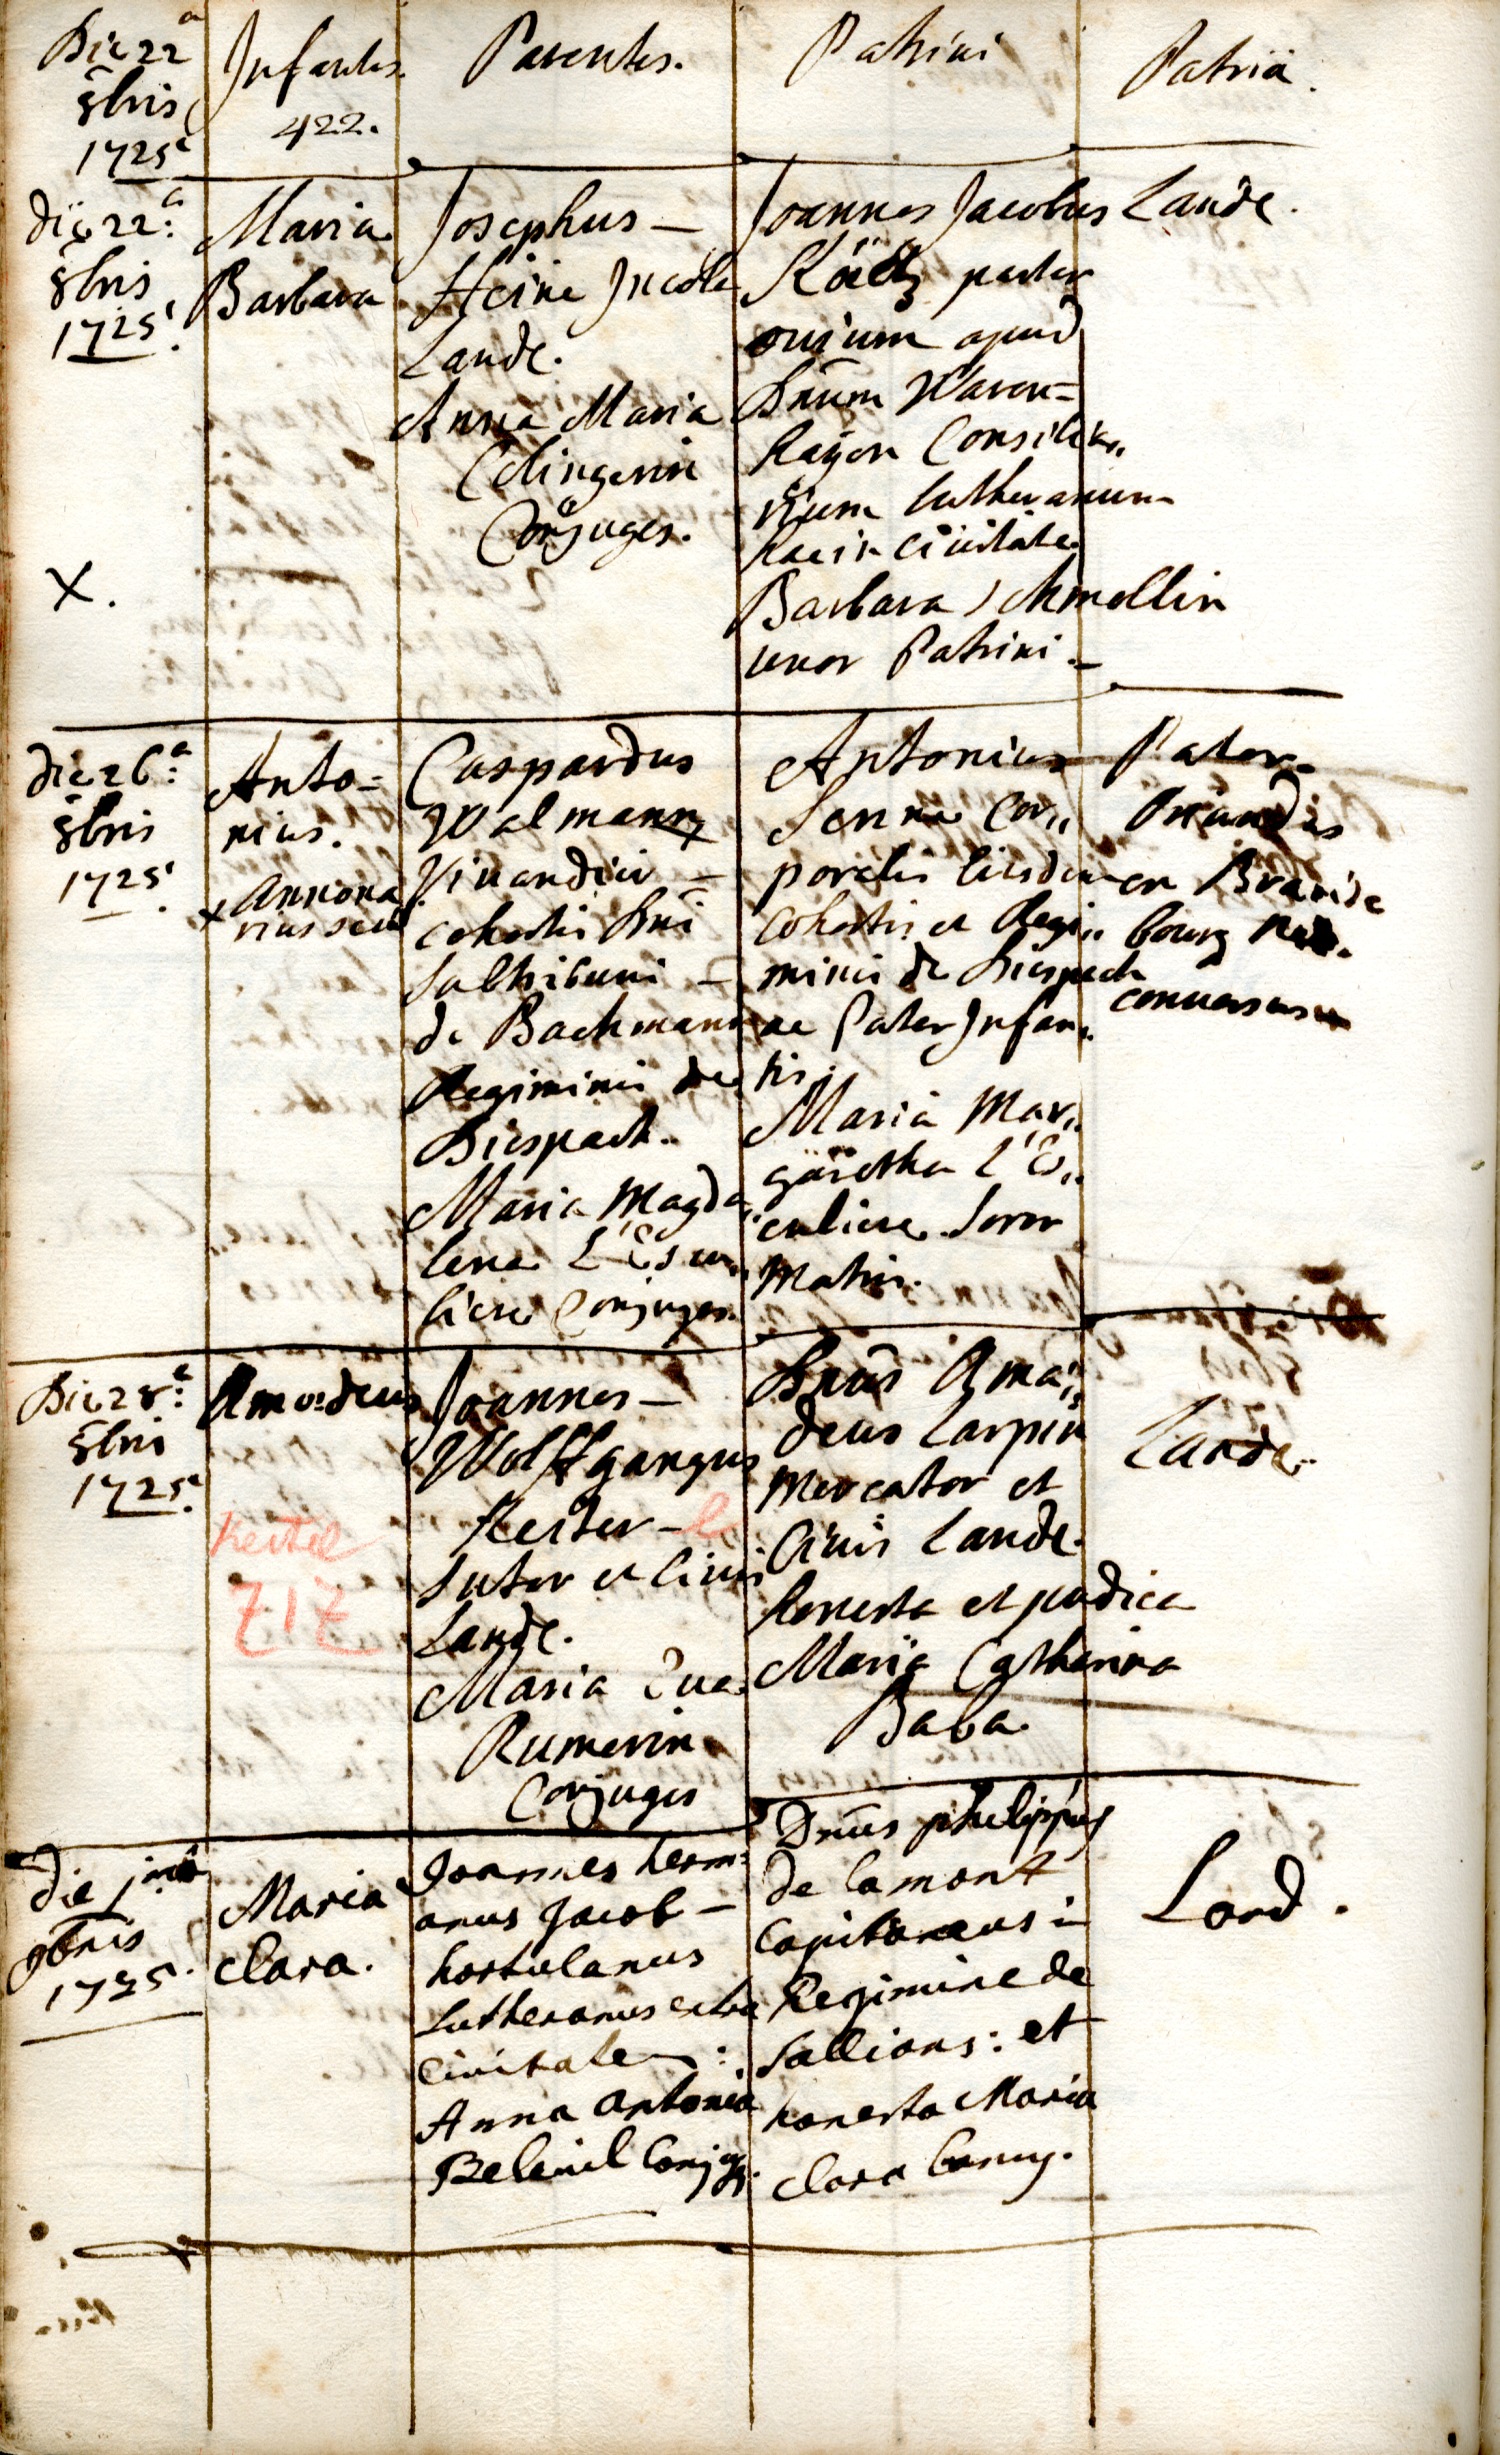 Die 22a
8bris
1725
Infantes.
422.
Parentes.
Patrini
Patria.
die 22:a
8bris
1725.
X.
Maria
Barbara
Josephus –
Heine Incola
Landæ.
Anna Maria
Conjuges.
Joannes Jacobus
pastor
ovium apud
Dnum
Consilia„
rium lutheranum
hac in civitate.
Barbara Schmellin
uxor Patrini –
Landæ.
die 26:a
8bris
1725.
Anto=
nius.
x Annona
rius seu
Caspardus
Walmann
Vivandier –
cohortis Dni
–
de Bachmann
Regiminis de
Diespach.
Maria Magda„
lena L'Escu„
liere Conjuges.
Antonius
Senna Cor„
poralis eiusdem
Cohortis et Regi„
minis de Diespach
ac Pater Infan„
tis.
Maria Mar„
garetha L'Es„
culiere Soror
Matris.
Pater
ex Brande
bourg
conversus
Die 28:a
8bris
1725.
Amadeus
Kertel
Z I Z
Joannes –
Wolffgangus
Kerter – l
Sutor et Civis
Landæ.
Maria Eva
Rumerin
Conjuges
Dnus Ama„
deus Carpin
Mercator et
Civis Landæ.
honesta et pudica
Maria Catharina
Baba.
Landæ.
die 1ma
9bris
1725.
Maria
Clara.
Joannes herm:
anus Jacob –
hortulanus
Lutheranus extra
Civitatem :
Anna Antonia
Conjges.
Dnus philippus
de lamont
Capitaneus in
Regimine de
Sallians : et
honesta Maria
Clara
Land.